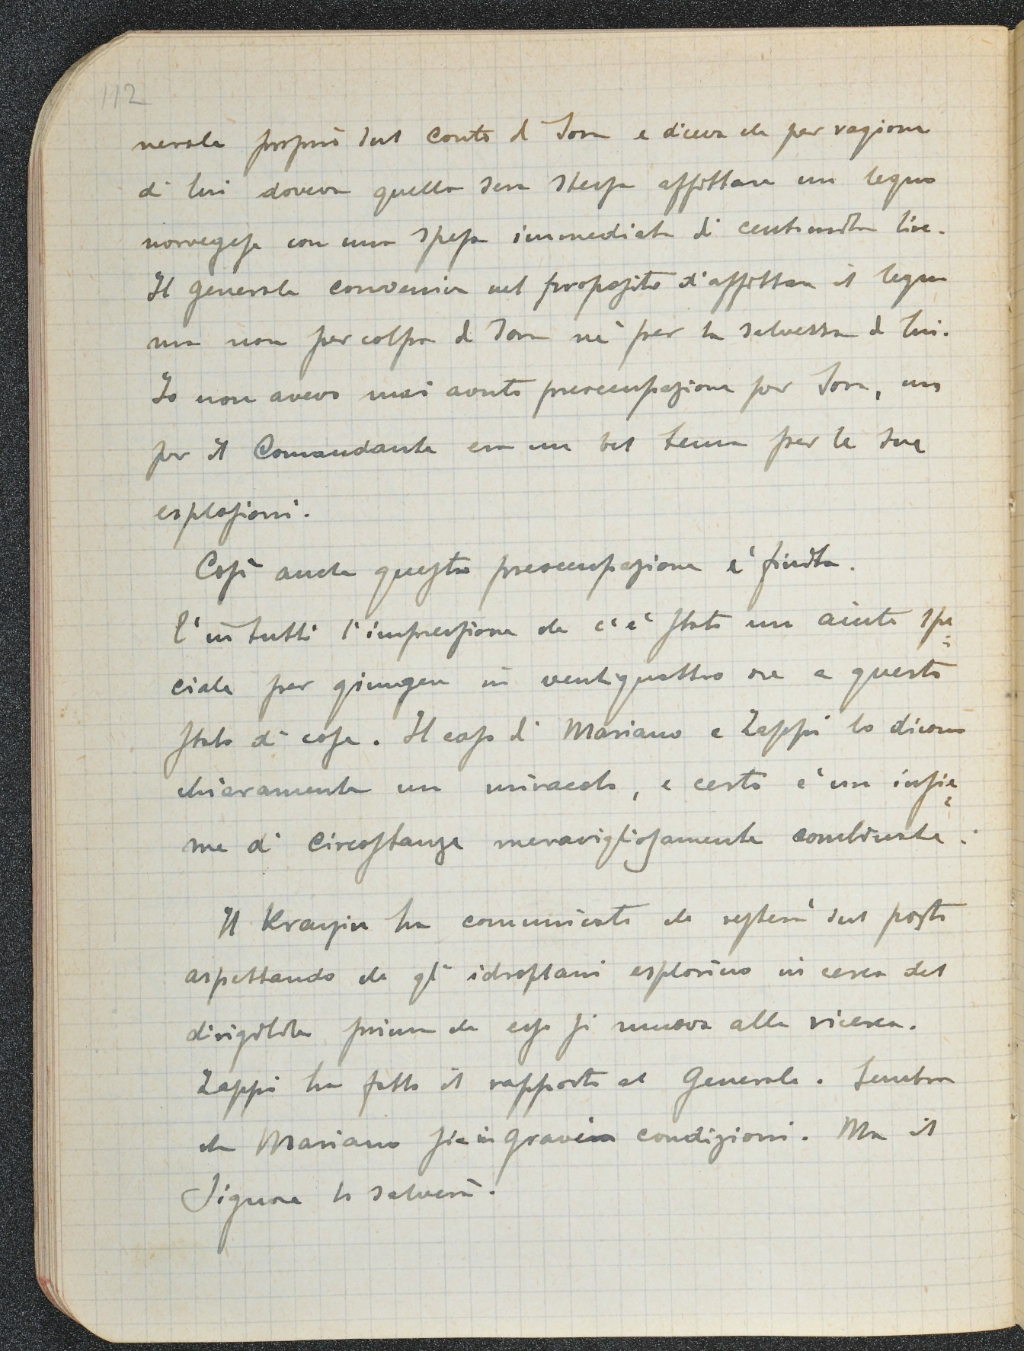 112
nerale proprio sul conto di Sora e diceva che per ragione
di lui doveva quella sera stessa affittare un legno
norvegese con una spesa immediata di centomila lire.
Il generale conveniva nel proposito d'affittare il legno
ma non per colpa di Sora nè per la salvezza di lui.
Io non avevo mai avuto preoccupazione per Sora, ma
per il Comandante era un bel tema per le sue
esplosioni.
Così anche questa preoccupazione è finita.
È in tutti l'impressione che c'è stato un aiuto spe=
ciale per giungere in ventiquattro ore a questo
stato di cose. Il caso di Mariano e Zappi lo dicono
chiaramente un miracolo, e certo è un insie=
me di circostanze meravigliosamente combinate.
Il Krassin ha comunicato che resterà sul posto
aspettando che gli idroplani esplorino in cerca del
dirigibile prima che esso si muova alla ricerca.
Zappi ha fatto il rapporto al Generale. Sembra
che Mariano sia in gravi condizioni. Ma il
Signore lo salverà.